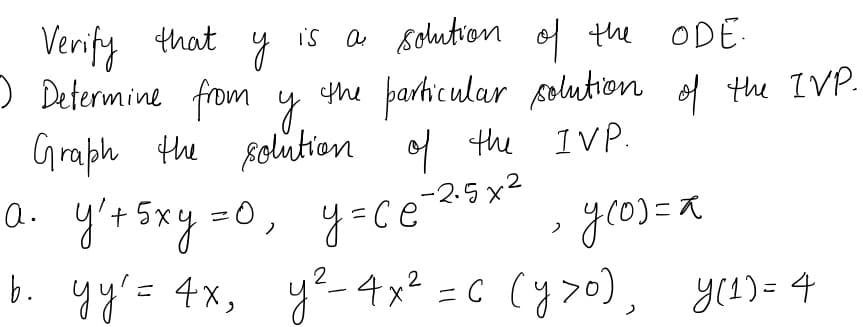 Verify that y is a solution of the ODE.
) Determine from y the particular solution of the IVP.
Graph the solution of the IVP.
a. y'+5xy=0, y=ce^-2.5x², y(0)=π
b. yy'=4x, y²-4x²=c (y>0), y(1)=4